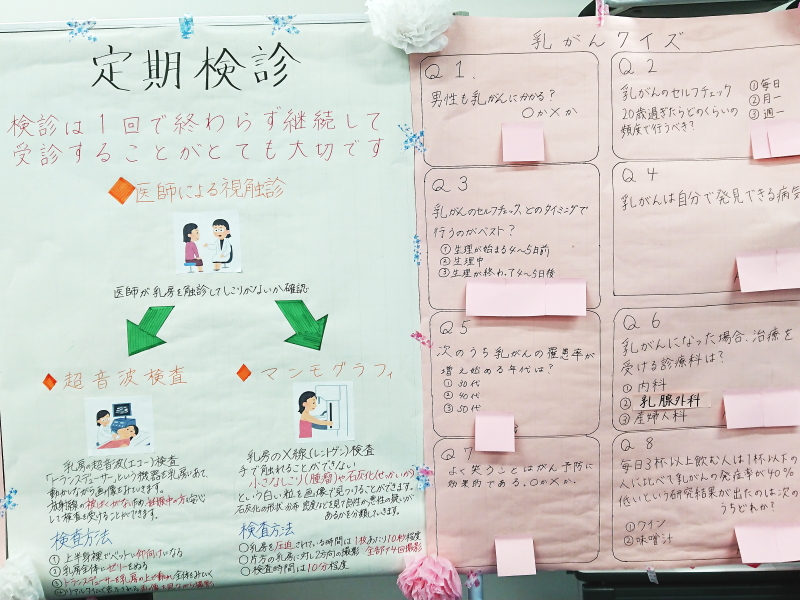 定期検診
検診は1回で終わらず継続して
受診することがとても大切です
医師による視触診
医師が乳房を触診してしこりがないか確認
超音波検査
乳房の超音波(エコー)検査
「トランスデューサーという機器を乳房にあて、
動かしながら画像をみていきます。
放射線の被ばくがないため、妊娠中の方も安心
して検査を受けることができます。
検査方法
① 上半身裸でベットに仰向けになる
② 乳房全体にゼリーをぬる
③ トランスデューサーを乳房の上で動かし全体をみていく
マンモグラフィ
乳房のX線(レントゲン)検査
手で触れることができない
小さなしこり(腫瘤)や石灰化(せっかいか)
という白い粒を画像で見つけることができます。
石灰化の形状、分布、密度などを見て良性か悪性の疑いが
あるかを分類していきます。
検査方法
○ 乳房を圧迫されている時間は1枚あたり10秒程度
○ 片方の乳房に対し2方向の撮影 全部で4回撮影
○ 検査時間は10分程度
乳がんクイズ
Q1.
男性も乳がんにかかる?
○か×か
Q2
乳がんのセルフチェック
20歳過ぎたらどのくらいの
頻度で行うべき?
①毎日
②月一
③週一
Q3
乳がんのセルフチェック、どのタイミングで
行うのがベスト?
① 生理が始まる4〜5日前
② 生理中
③ 生理が終わって4〜5日後
Q4
乳がんは自分で発見できる病気
Q5
次のうち乳がんの罹患率が
増え始める年代は?
① 30代
② 40代
③ 50代
Q6
乳がんになった場合、治療を
受ける診療科は?
① 内科
② 乳腺外科
③ 産婦人科
Q7
よく笑うことはがん予防に
効果的である。○か×か
Q8
毎日3杯以上飲む人は1杯以下の
人に比べて乳がんの発症率が40%
低いという研究結果が出たのは次の
うちどれか?
①ワイン
②味噌汁